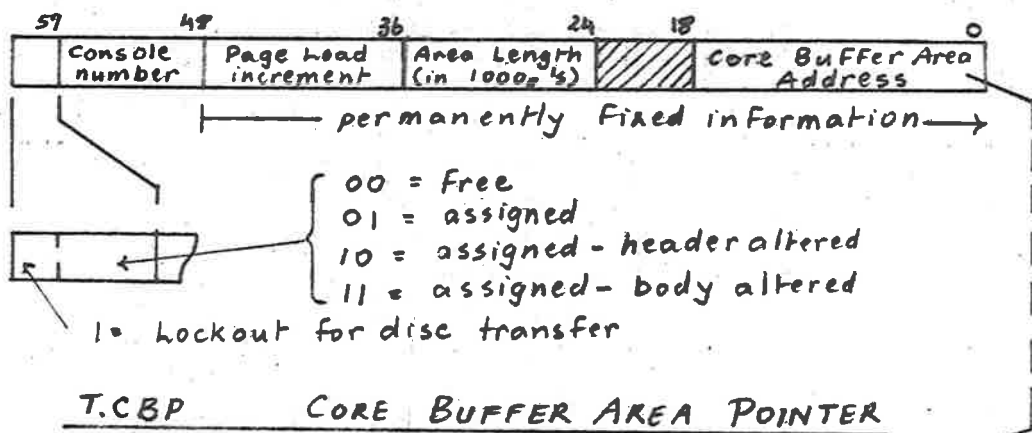 59 48 36 24 18 0
Console number
Page Load increment
Area Length (in 1000₈'s)
Core Buffer Area Address
permanently Fixed information
00 = Free
01 = assigned
10 = assigned - header altered
11 = assigned - body altered
1 = Lockout for disc transfer
T.CBP CORE BUFFER AREA POINTER